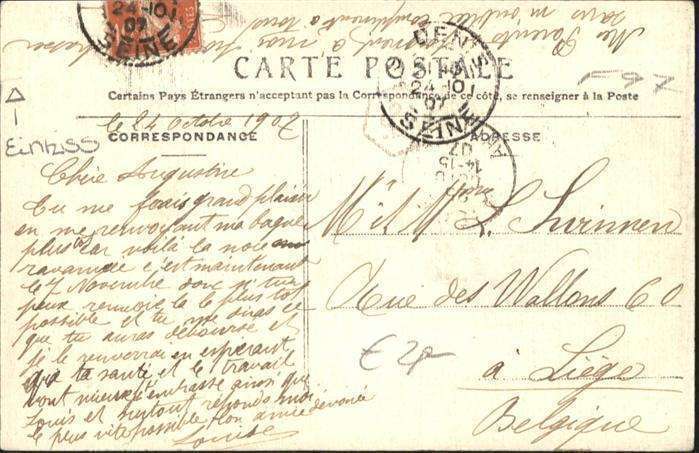 24-10
07
SEINE
Mes Parents
sans m'oublier
CARTE POSTALE
Certains Pays Étrangers n'acceptant pas la Correspondance de ce côté, se renseigner à la Poste
F97
ST DENIS
24-10
07
SEINE
14-15
07
EINTISS
le 24 octobre 1907
CORRESPONDANCE
ADRESSE
Chère Augustine
Tu me ferais grand plaisir
en me renvoyant ma bague
plus tôt car voilà la noce
avancée c'est maintenant
le 7 Novembre donc si tu
peux renvoie la le plus tôt
possible et tu me diras ce
que tu auras déboursé et
je te renverrai en espérant
que ta santé et le travail
vont mieux t'embrasse ainsi que
Louis et surtout réponds moi
le plus vite possible ton amie dévouée
Louise
L. Swinnen
Rue des Wallons 60
à Liège
Belgique
€ 2